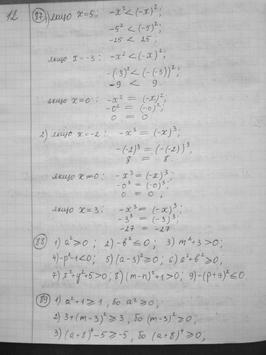 12
87) якщо x=5: -x² < (-x)²;
-5² < (-5)²;
-25 < 25;
якщо x=-3: -x² < (-x)²;
-(3)² < (-(-3))²;
-9 < 9
якщо x=0: -x² = (-x)²;
-0² = (-0)²;
0 = 0
2) якщо x=-2: -x³ = (-x)³;
-(-2)³ = (-(-2))³
8 = 8.
якщо x=0: -x³ = (-x)³;
-0³ = (-0)³;
0 = 0,
якщо x=3: -x³ = (-x)³;
-3³ = (-3)³;
-27 = -27
88) 1) a²≥0; 2) -b²≤0; 3) m⁴+3>0;
4) -p²-1<0; 5) (a-3)²≥0; 6) a²+b²≥0;
7) x²+y²+5>0; 8) (m-n)²+1>0; 9) -(p+9)²≤0
89) 1) a²+1≥1, бо a²≥0;
2) 3+(m-3)²≥3, бо (m-3)²≥0;
3) (a+8)⁴-5≥-5, бо (a+8)⁴≥0,